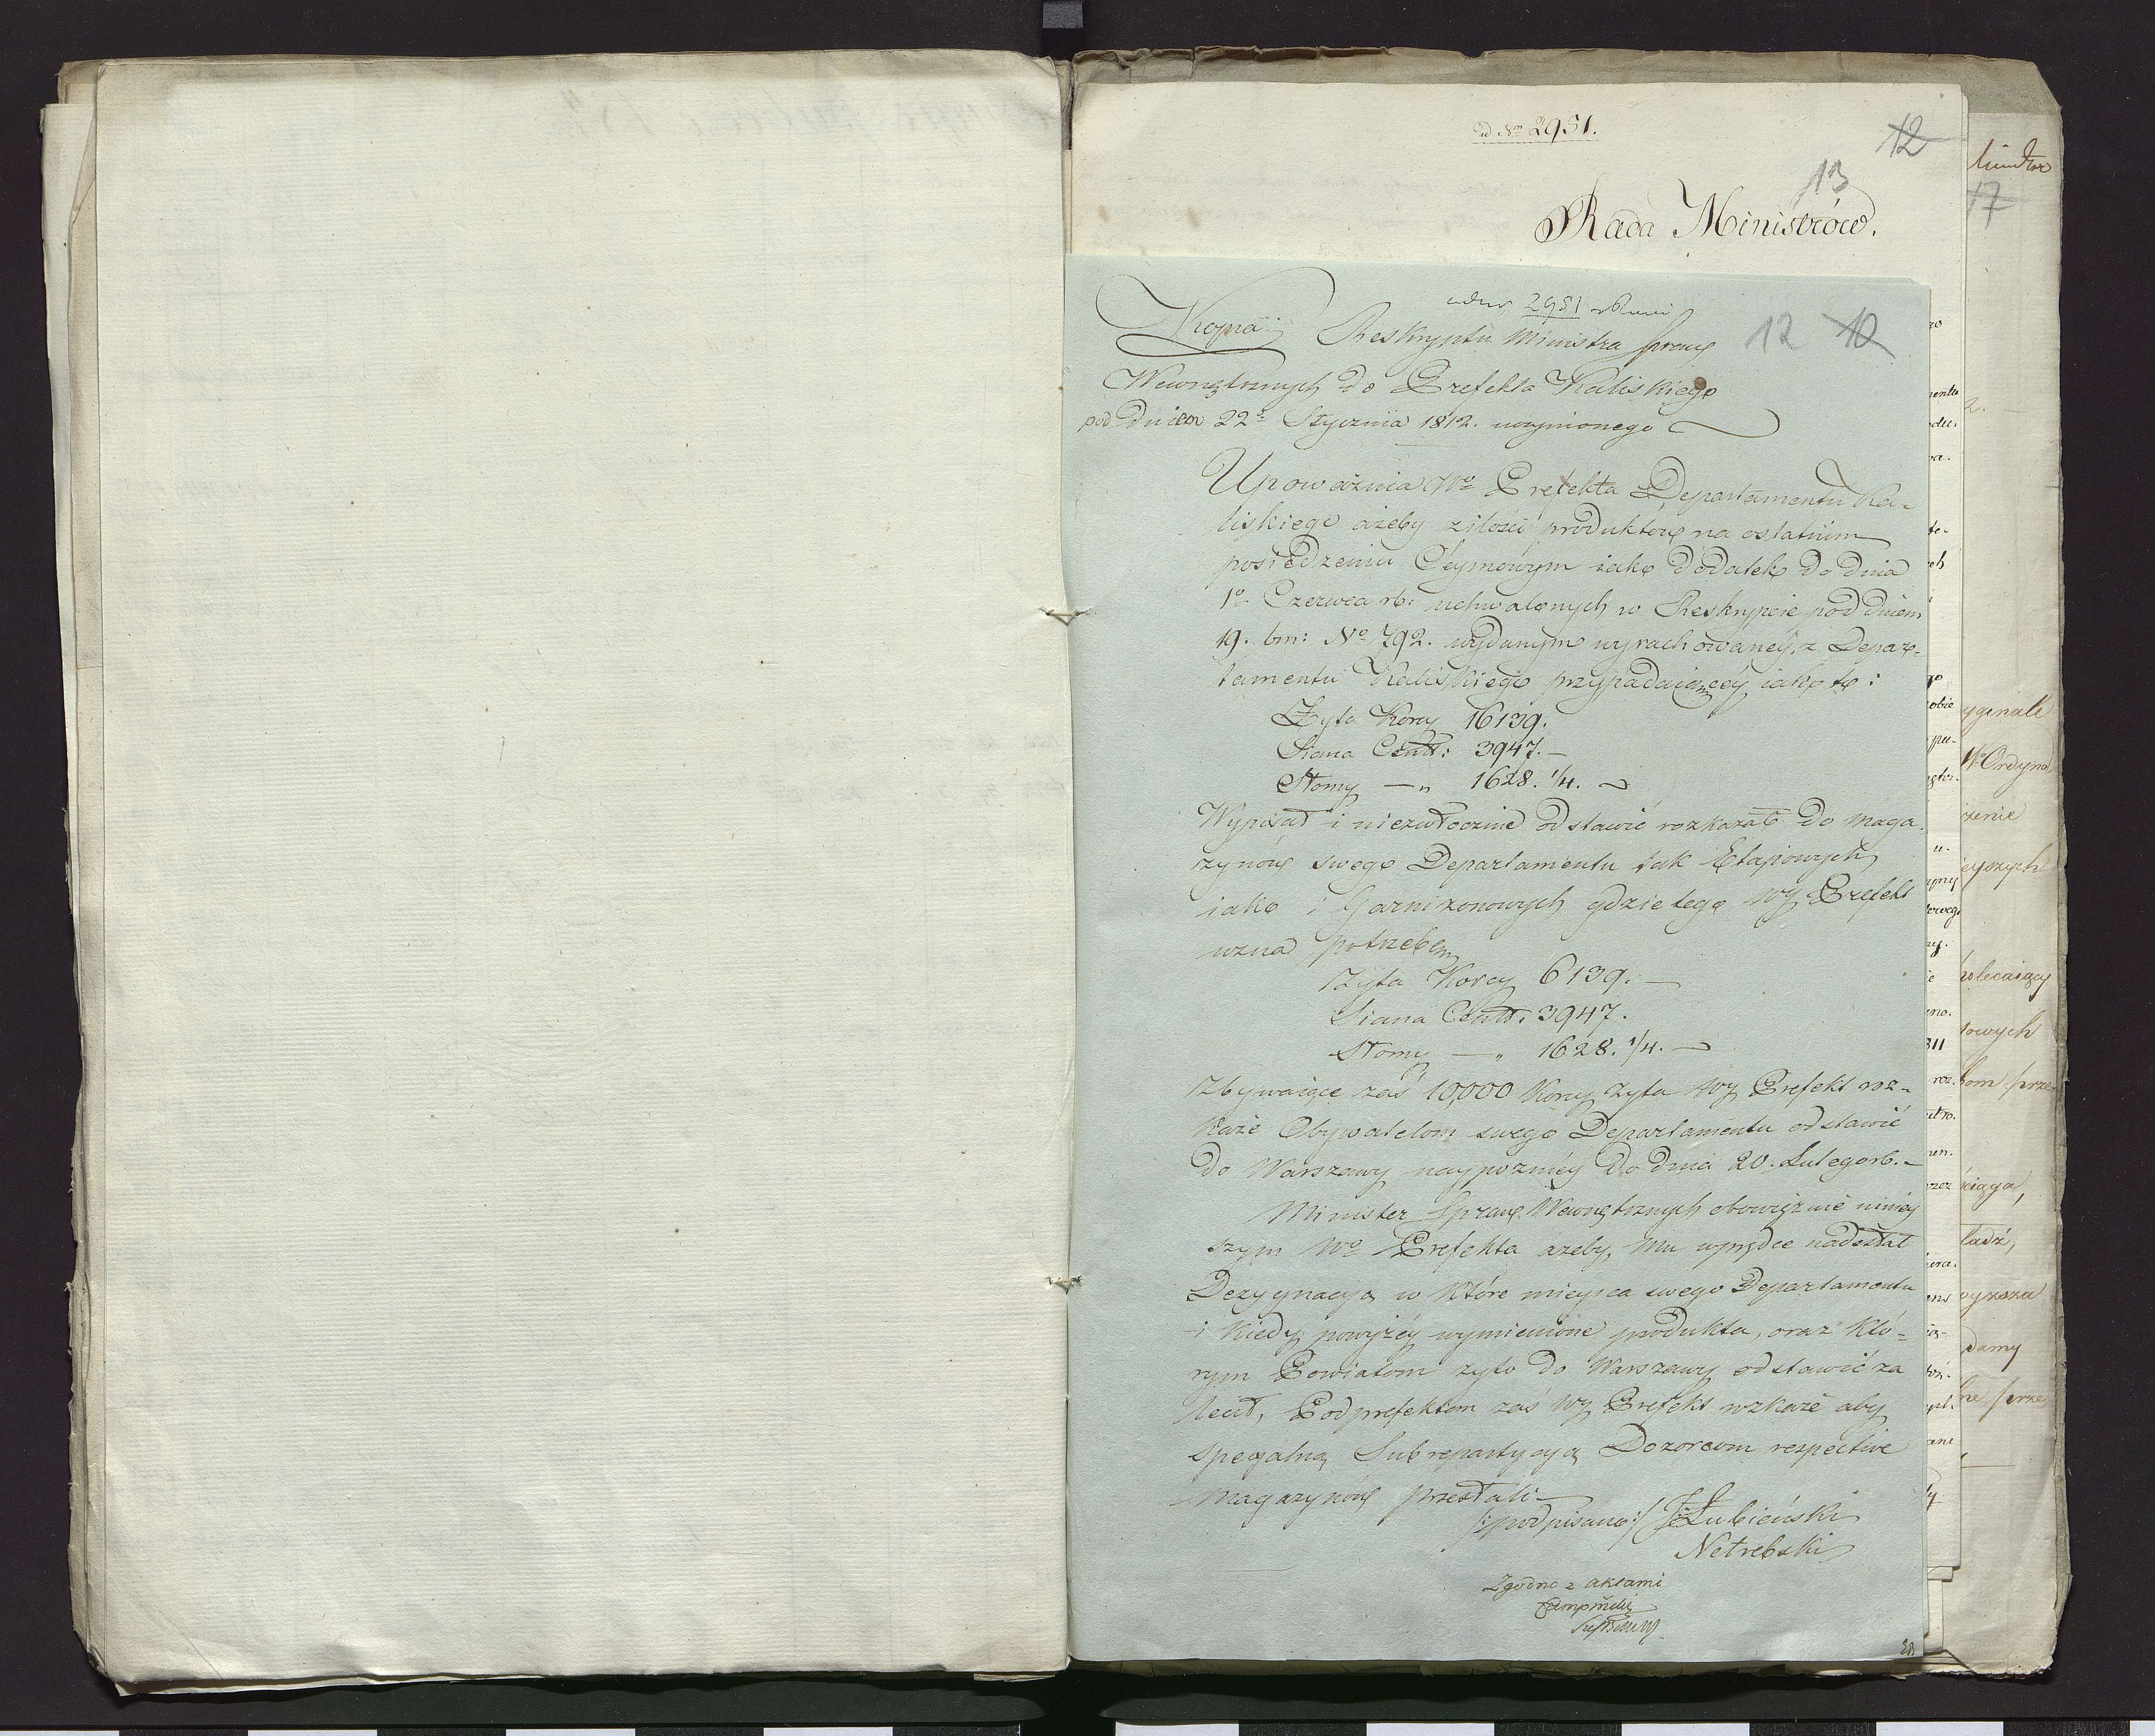 ad No 2951.
12
13
Rada Ministrów.
2951
12 12
Kopia Reskryptu Ministra Spraw
Wewnętrznych do Prefekta Kaliskiego
pod dniem 22o Stycznia 1812. uczynionego
Upoważnia Wo Prefekta Departamentu Ka-
liskiego ażeby z ilości produktów na ostatnim
posiedzeniu Seymowym iako dodatek do dnia
1o Czerwca rb: uchwalonych w Reskrypcie pod dniem
19. bm: No 792. wydanym wyrachowaney, z Depar-
tamentu Kaliskiego przypadaiącéy iako to:
Żyta Korcy 16139.
Siana Centt: 3947. —
Słomy — „ 1628. 1/4. —
Wypisał i niezwłocznie odstawić rozkazał do maga-
zynów swego Departamentu tak Etapowych
iako i Garnizonowych gdzie tego Wy Prefekt
uzna potrzebę
Żyta Korcy 6139. —
Siana Centt: 3947.
Słomy — „ 1628. 1/4. —
Zbywaiące zaś 10,000 Korcy Żyta Wy Prefekt roz-
każe Obywatelom swego Departamentu odstawić
do Warszawy naypozniéy do dnia 20. Lutego rb. —
Minister Spraw Wewnętrznych obowiązuie niniey
szym Wo Prefekta ażeby, Mu wprędce nadesłał
Dezygnacyą w które mieysca swego Departamentu
i kiedy powyżéy wymienione produkta, oraz któ-
rym Powiatom żyto do Warszawy odstawić za
lecił, Podprefektom zaś Wy Prefekt rozkaże aby
specyalną Subrepartycyą Dozorcom respective
Magazynów przesłali —
/:podpisano:/ J: Łubieński
Netrebski
Zgodno z aktami
17
2.
yginale
Wo Ordyna
zenie
eyszych
olecaiący
towych
iąga,
ładź,
wyższa
damy
811